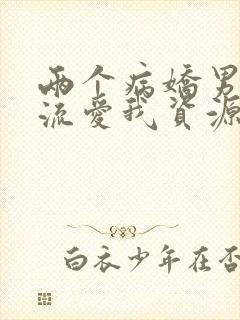 两个病嬌男
流愛我資源
白衣少年在否